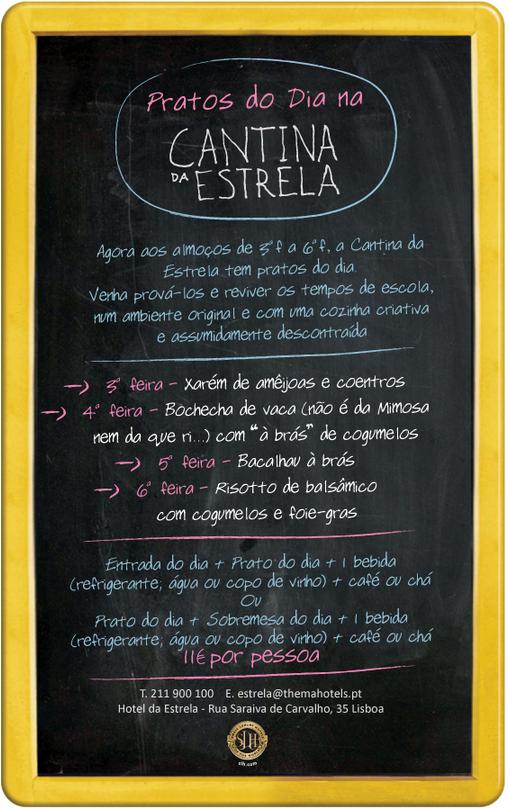 Pratos do Dia na
CANTINA
DA ESTRELA
Agora aos almoços de 3ªf a 6ªf, a Cantina da
Estrela tem pratos do dia.
Venha prová-los e reviver os tempos de escola,
num ambiente original e com uma cozinha criativa
e assumidamente descontraída
3ª feira - Xarém de amêijoas e coentros
4ª feira - Bochecha de vaca (não é da Mimosa
nem da que ri...) com "à brás" de cogumelos
5ª feira - Bacalhau à brás
6ª feira - Risotto de balsâmico
com cogumelos e foie-gras
Entrada do dia + Prato do dia + 1 bebida
(refrigerante; água ou copo de vinho) + café ou chá
Ou
Prato do dia + Sobremesa do dia + 1 bebida
(refrigerante; água ou copo de vinho) + café ou chá
11€ por pessoa
T. 211 900 100 E. estrela@themahotels.pt
Hotel da Estrela - Rua Saraiva de Carvalho, 35 Lisboa
SLH
slh.com